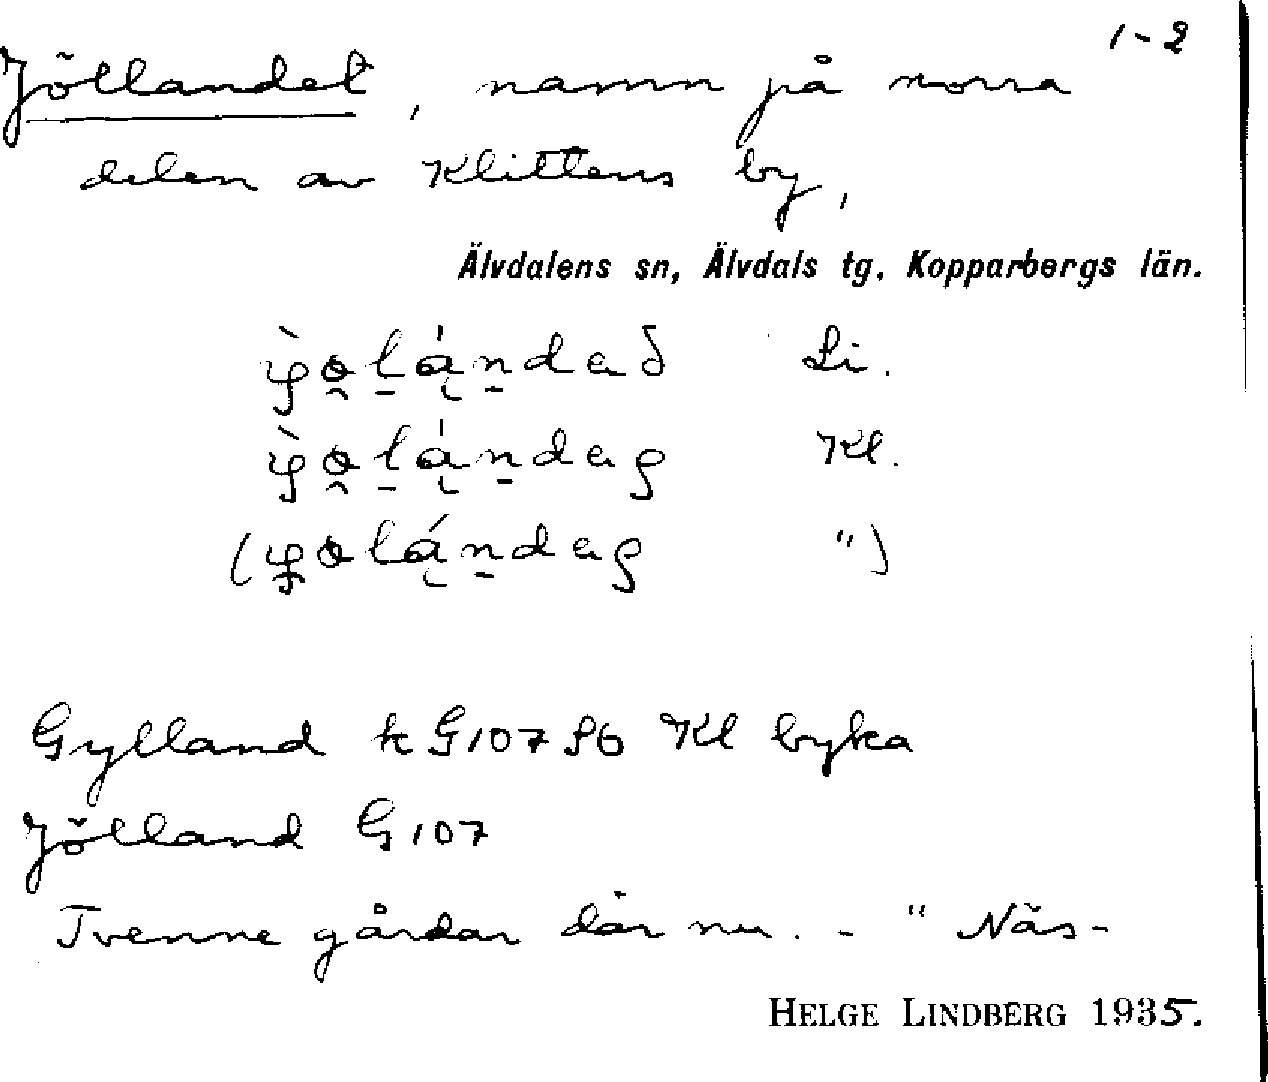 1-2
Jöllandet, namn på norra
delen av Klittens by,
Älvdalens sn, Älvdals tg. Kopparbergs län.
Li.
Kl.
")
Gylland k G107 Kl byka
Jölland G107
Tvenne gårdar där nu. - " Näs-
HELGE LINDBERG 1935.